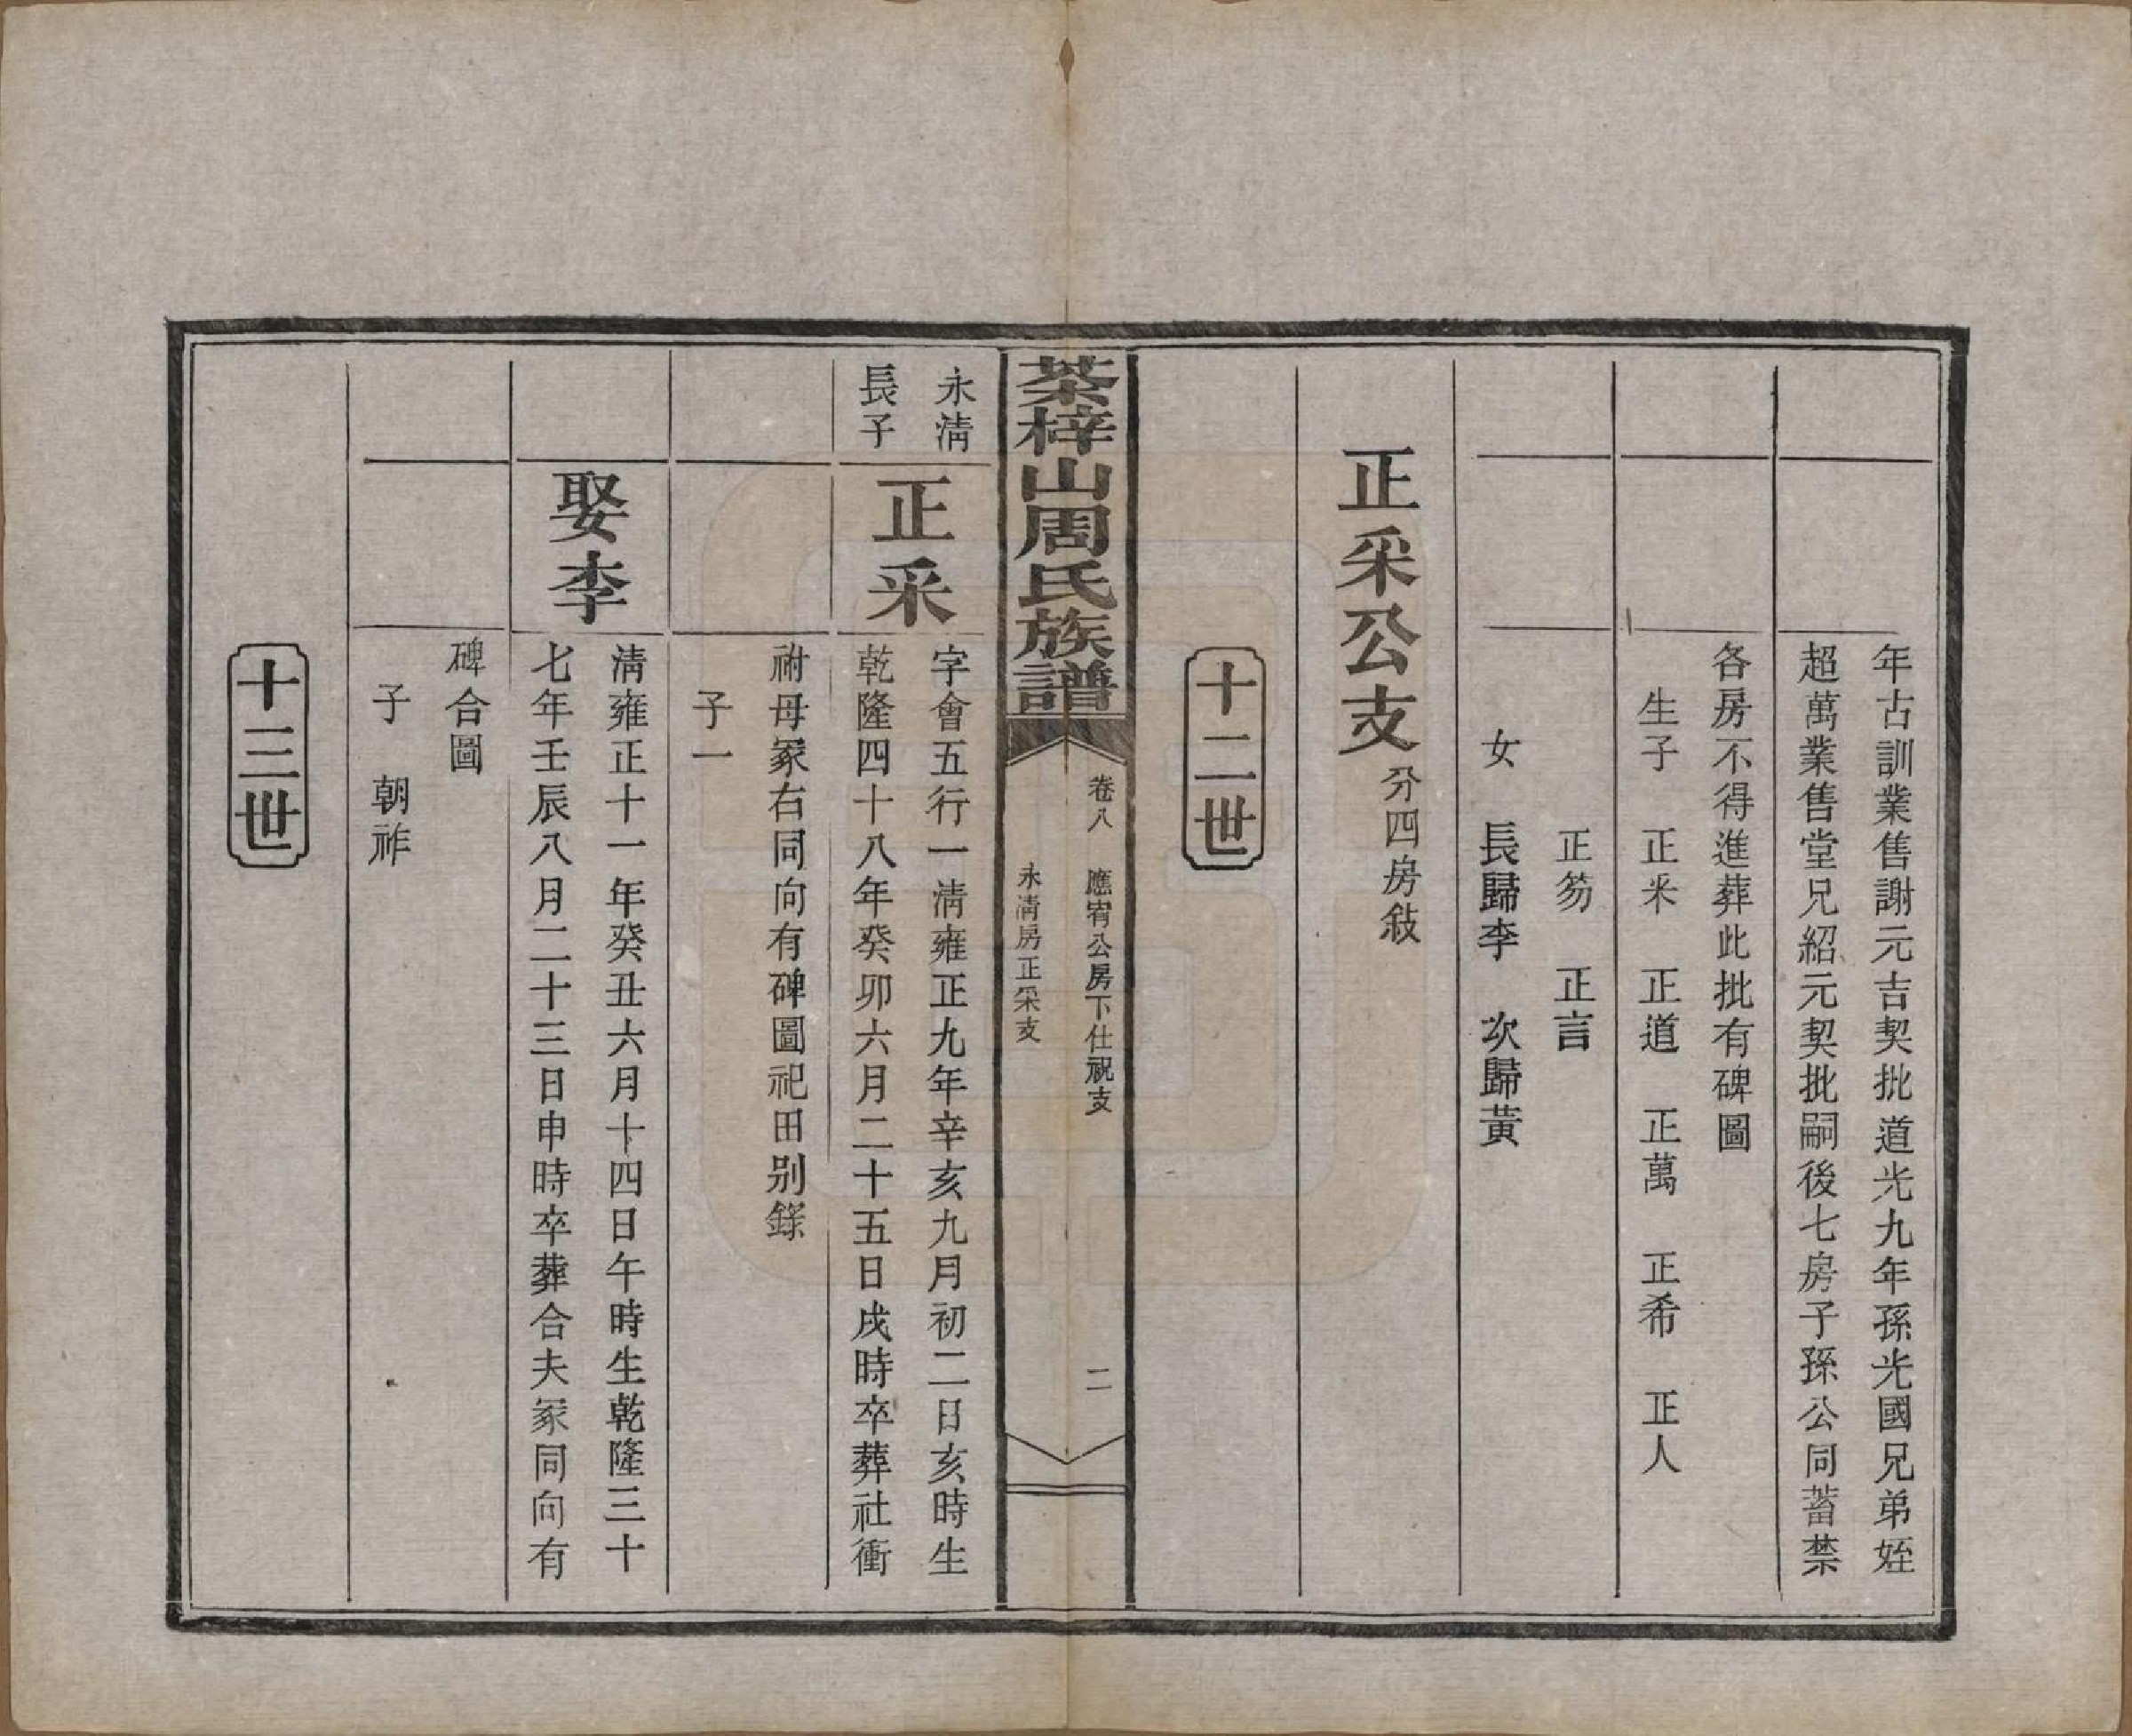 年古訓業售謝元吉契批道光九年孫光國兄弟姪
超萬業售堂兄紹元契批嗣後七房子孫公同蓄禁
各房不得進葬此批有碑圖
生子　正采　正道　正萬　正希　正人
正笏　正言
女　長歸李　次歸黃
正采公支分四房敍
十二世
茶梓山周氏族譜
卷八　應宥公房下仕祝支
永清房正采支
二
永清
長子
正采
字會五行一清雍正九年辛亥九月初二日亥時生
乾隆四十八年癸卯六月二十五日戌時卒葬社衝
祔母冢右同向有碑圖祀田別錄
子一
娶李
清雍正十一年癸丑六月十四日午時生乾隆三十
七年壬辰八月二十三日申時卒葬合夫冢同向有
碑合圖
子　朝祚
十三世